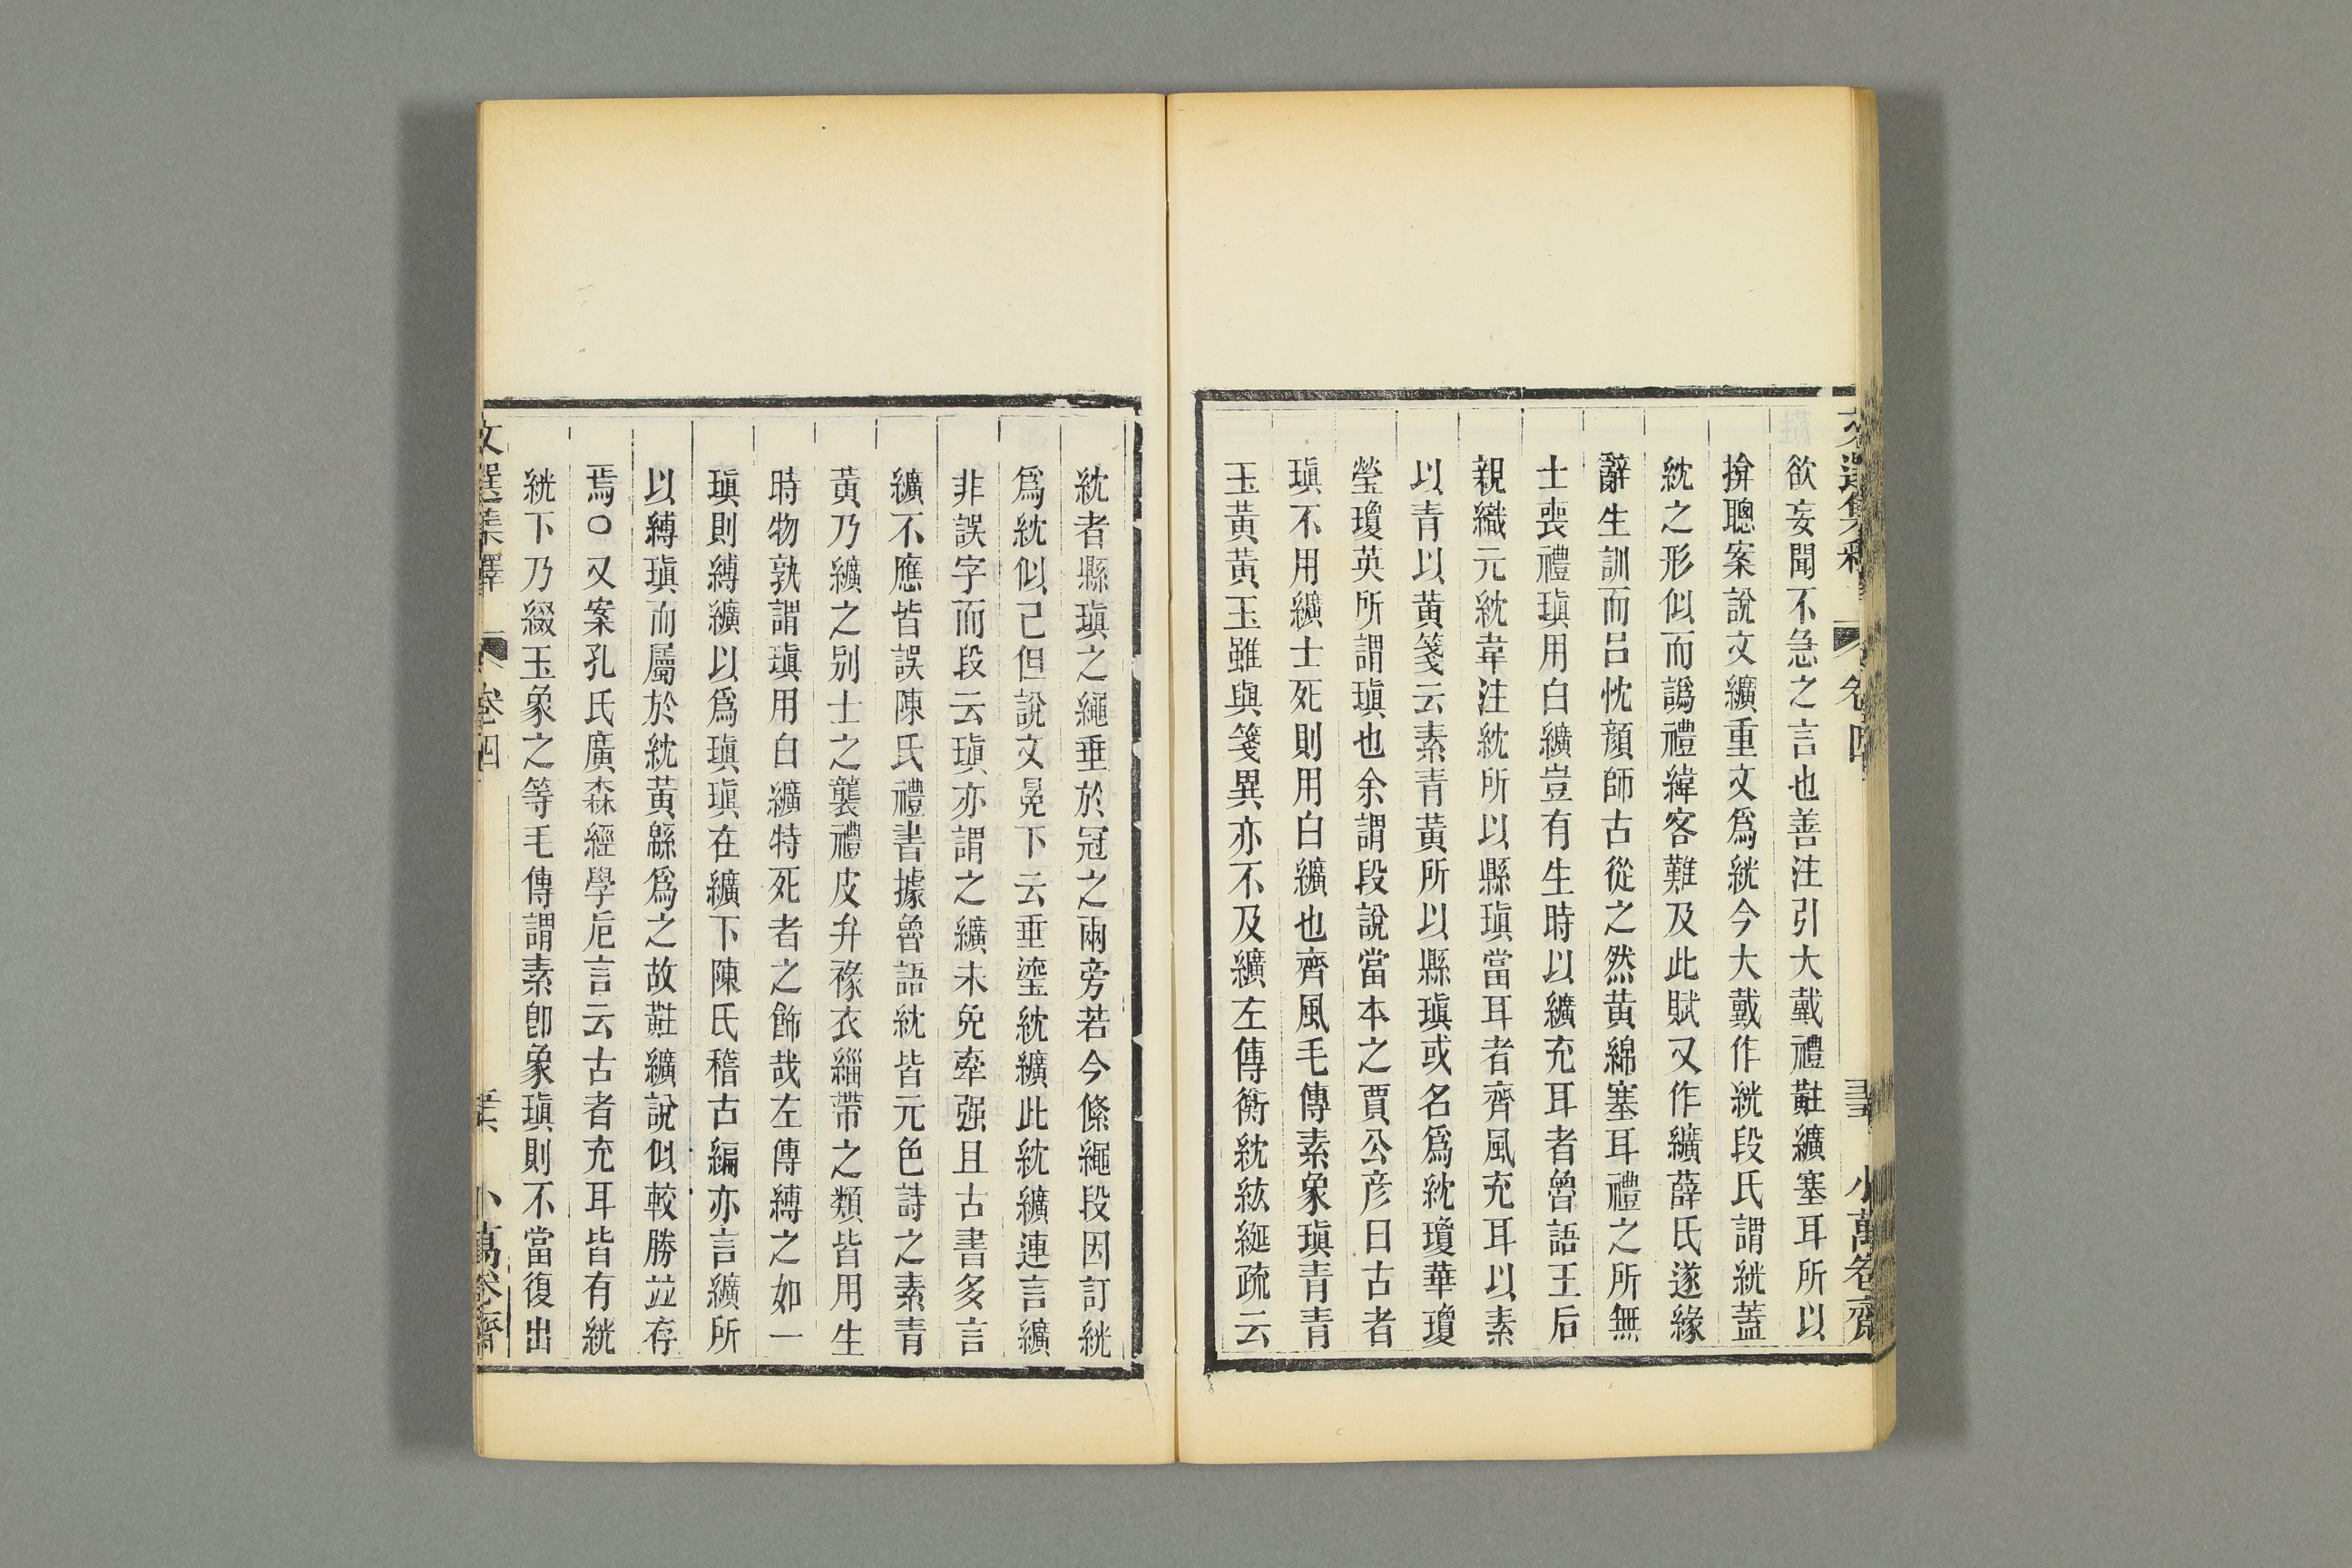 文選集釋 卷四 小萬卷齋
欲妄聞不急之言也善注引大戴禮黈纊塞耳所以
揜聰案說文纊重文爲絖今大戴作絖段氏謂絖蓋
紞之形似而譌禮緯客難及此賦又作纊薛氏遂緣
辭生訓而呂忱顔師古從之然黃綿塞耳禮之所無
士喪禮瑱用白纊豈有生時以纊充耳者魯語王后
親織元紞韋注紞所以縣瑱當耳者齊風充耳以素
以青以黃箋云素青黃所以縣瑱或名爲紞瓊華瓊
瑩瓊英所謂瑱也余謂段說當本之賈公彦曰古者
瑱不用纊士死則用白纊也齊風毛傳素象瑱青青
玉黃黃玉雖與箋異亦不及纊左傳衡紞紘綖疏云
紞者縣瑱之繩垂於冠之兩旁若今絛繩段因訂絖
爲紞似已但說文冕下云垂瑬紞纊此紞纊連言纊
非誤字而段云瑱亦謂之纊未免牽强且古書多言
纊不應皆誤陳氏禮書據魯語紞皆元色詩之素青
黃乃纊之别士之襲禮皮弁褖衣緇帶之類皆用生
時物孰謂瑱用白纊特死者之飾哉左傳縛之如一
瑱則縛纊以爲瑱瑱在纊下陳氏稽古編亦言纊所
以縛瑱而屬於紞黃緜爲之故黈纊說似較勝竝存
焉○又案孔氏廣森經學卮言云古者充耳皆有絖
絖下乃綴玉象之等毛傳謂素卽象瑱則不當復出
文選集釋 卷四 小萬卷齋